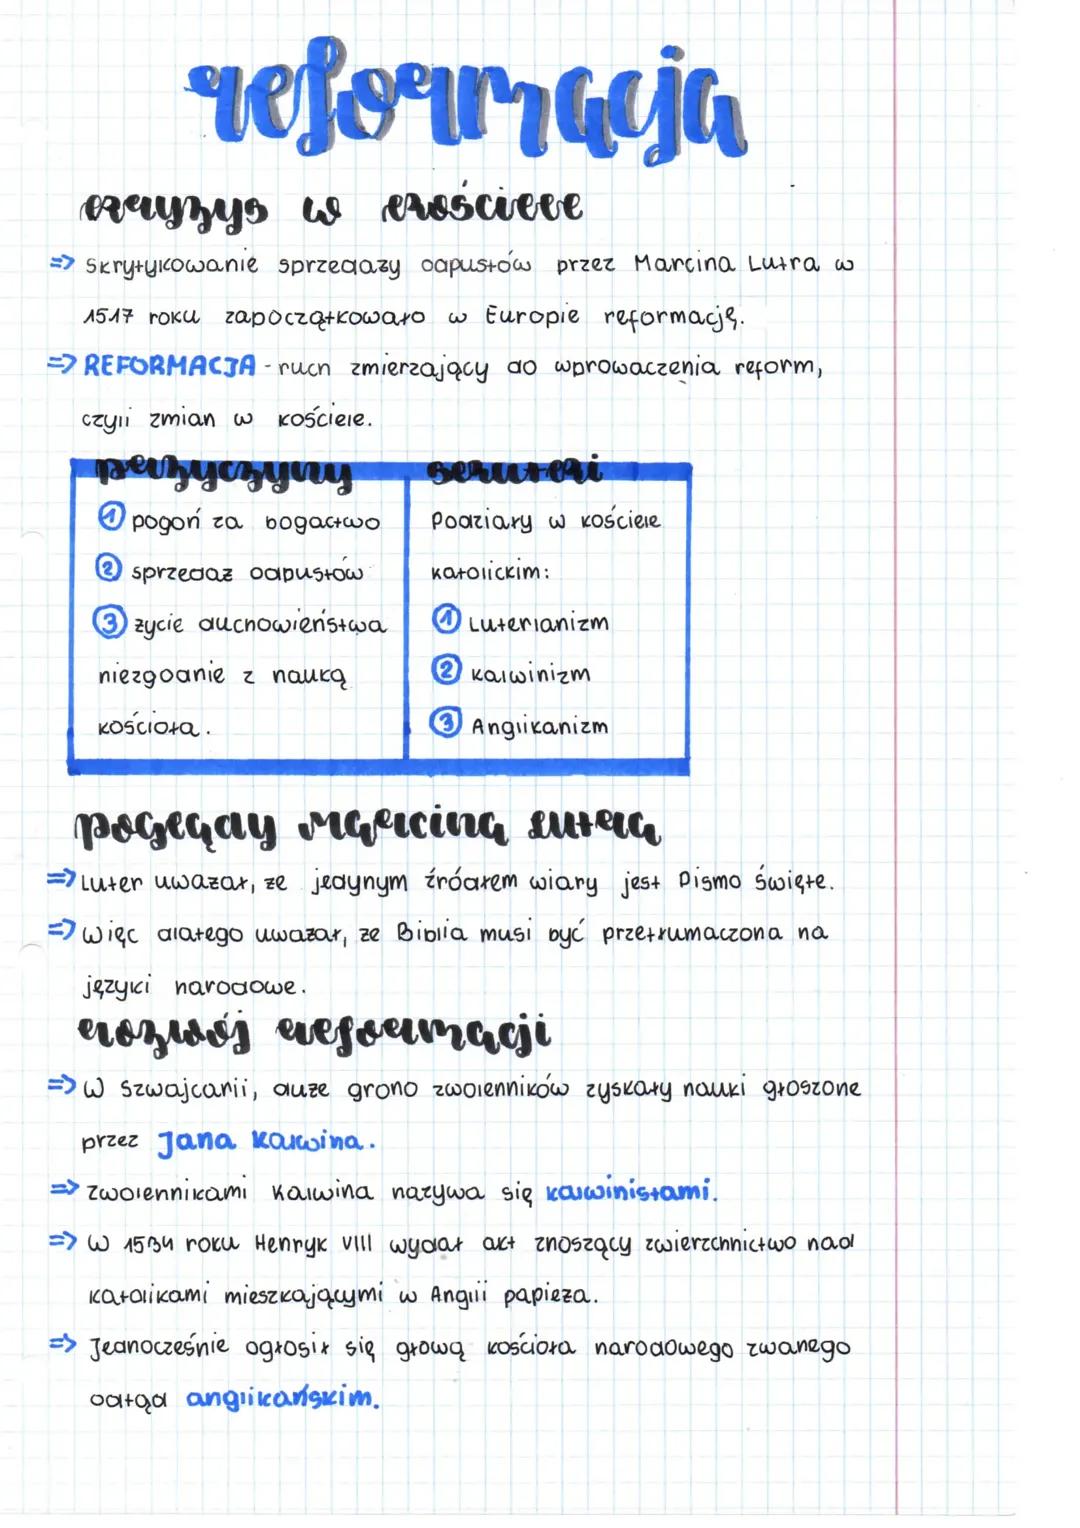 reformacja
kryzys w kościele
=> Skrytykowanie sprzedaży odpustów przez Marcina Lutra w
1517 roku zapoczątkowało w Europie reformację.
=> REFORMACJA - ruch zmierzający do wprowadzenia reform,
czyli zmian w kościele.
przyczyny
① pogoń za bogactwo
② sprzedaż odpustów
③ życie duchowieństwa
niezgodnie z nauką
kościoła.
skutki
Podziały w kościele
katolickim:
① Luterianizm
② kalwinizm
③ Anglikanizm
poglądy Marcina Lutra
=> Luter uważał, że jedynym źródłem wiary jest Pismo święte.
=> więc dlatego uważał, że Biblia musi być przetłumaczona na
języki narodowe.
rozwój reformacji
=> W Szwajcarii, duże grono zwolenników zyskały nauki głoszone
przez Jana Kalwina.
=> zwolennikami Kalwina nazywa się kalwinistami.
=> W 1534 roku Henryk VIII wydał akt znoszący zwierzchnictwo nad
katolikami mieszkającymi w Anglii papieża.
=> Jednocześnie ogłosił się głową kościoła narodowego zwanego
odtąd anglikańskim.